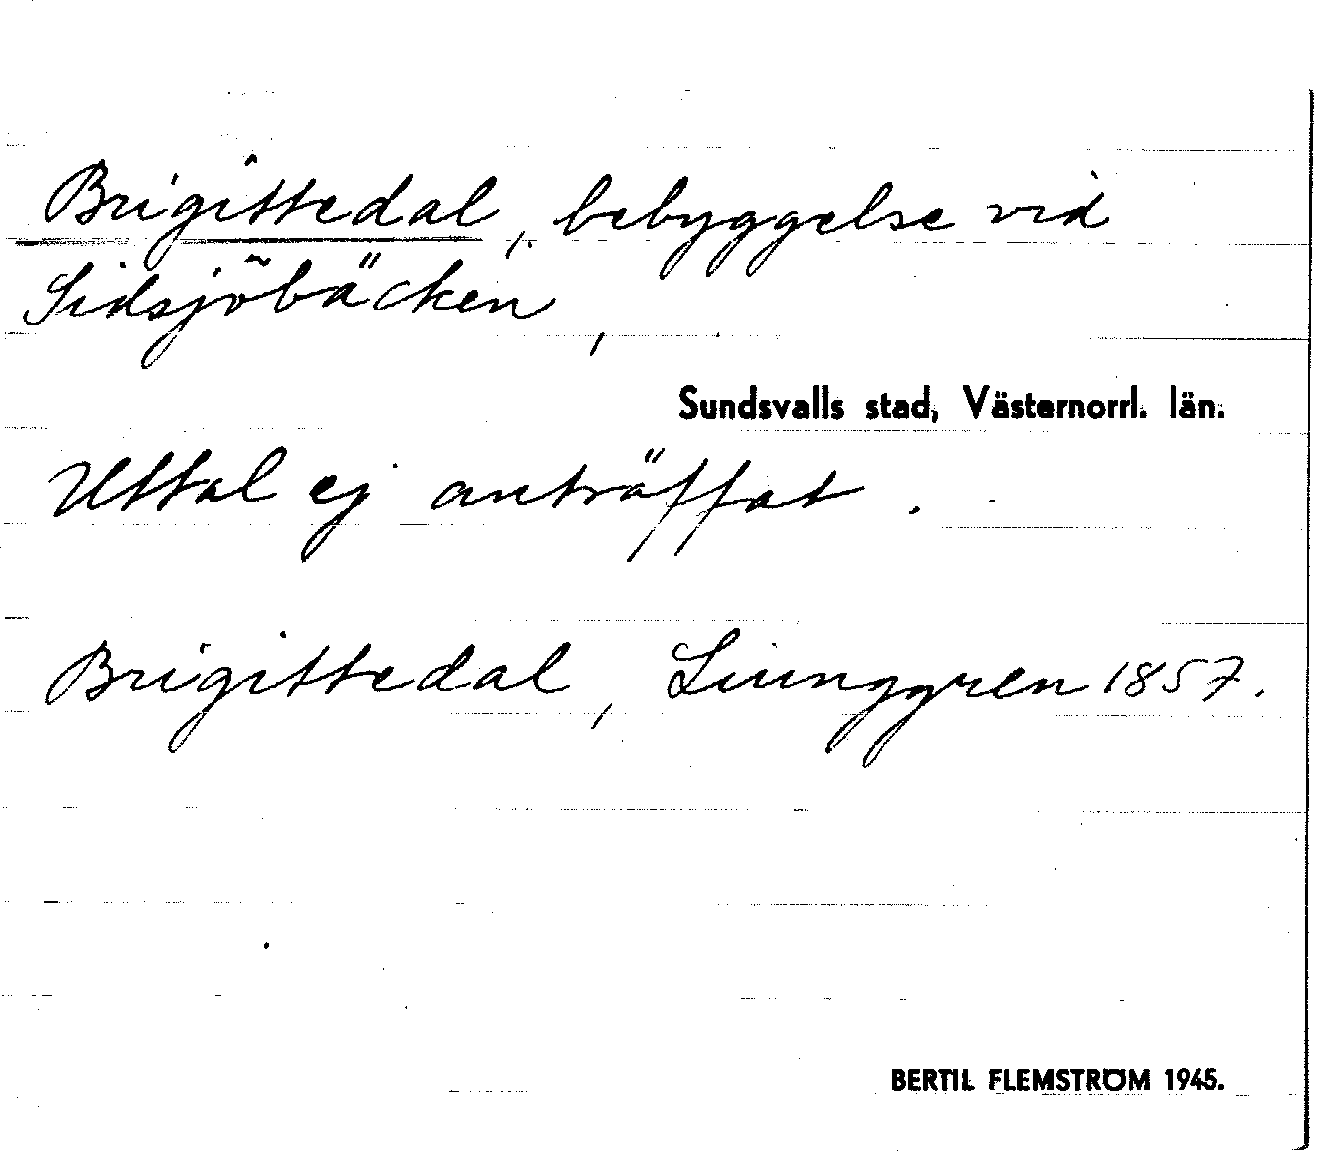 Brigittedal, bebyggelse vid
Sidsjöbäcken,
Sundsvalls stad, Västernorrl. län.
Uttal ej anträffat.
Brigittedal, Liunggren 1857.
BERTIL FLEMSTRÖM 1945.